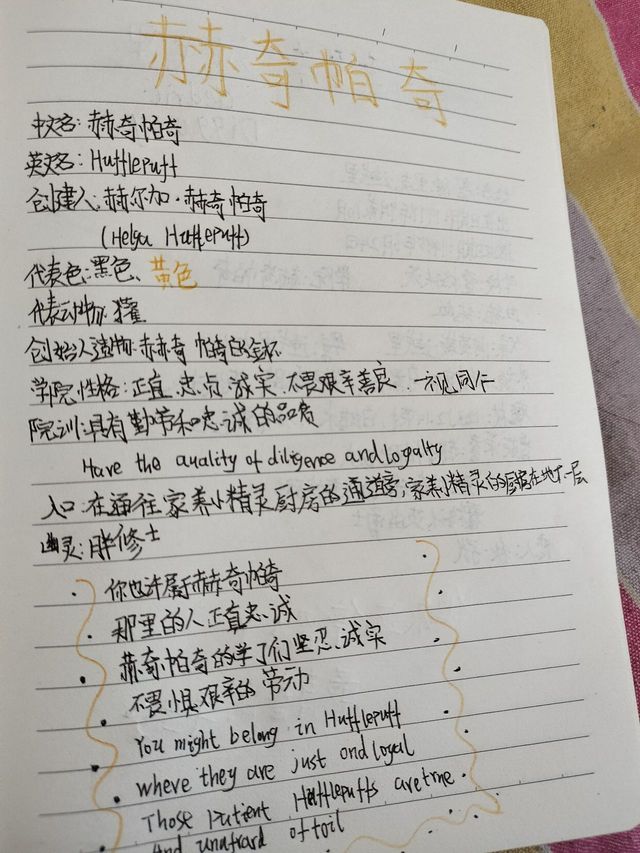 赫奇帕奇
中文名:赫奇帕奇
英文名:Hufflepuff
创建人:赫尔加·赫奇帕奇
(Helga Hufflepuff)
代表色:黑色、黄色
代表动物:獾
创始人遗物:赫奇帕奇的金杯
学院性格:正直、忠贞、诚实、不畏艰辛善良、一视同仁
院训:具有勤劳和忠诚的品质
Have the quality of diligence and loyalty
入口:在通往家养小精灵厨房的通道旁,家养小精灵的厨房在地下一层
幽灵:胖修士
你也许属于赫奇帕奇
那里的人正直忠诚
赫奇帕奇的学子们坚忍诚实
不畏惧艰辛的劳动
You might belong in Hufflepuff
where they are just and loyal
Those patient Hufflepuffs are true
And unafraid of toil